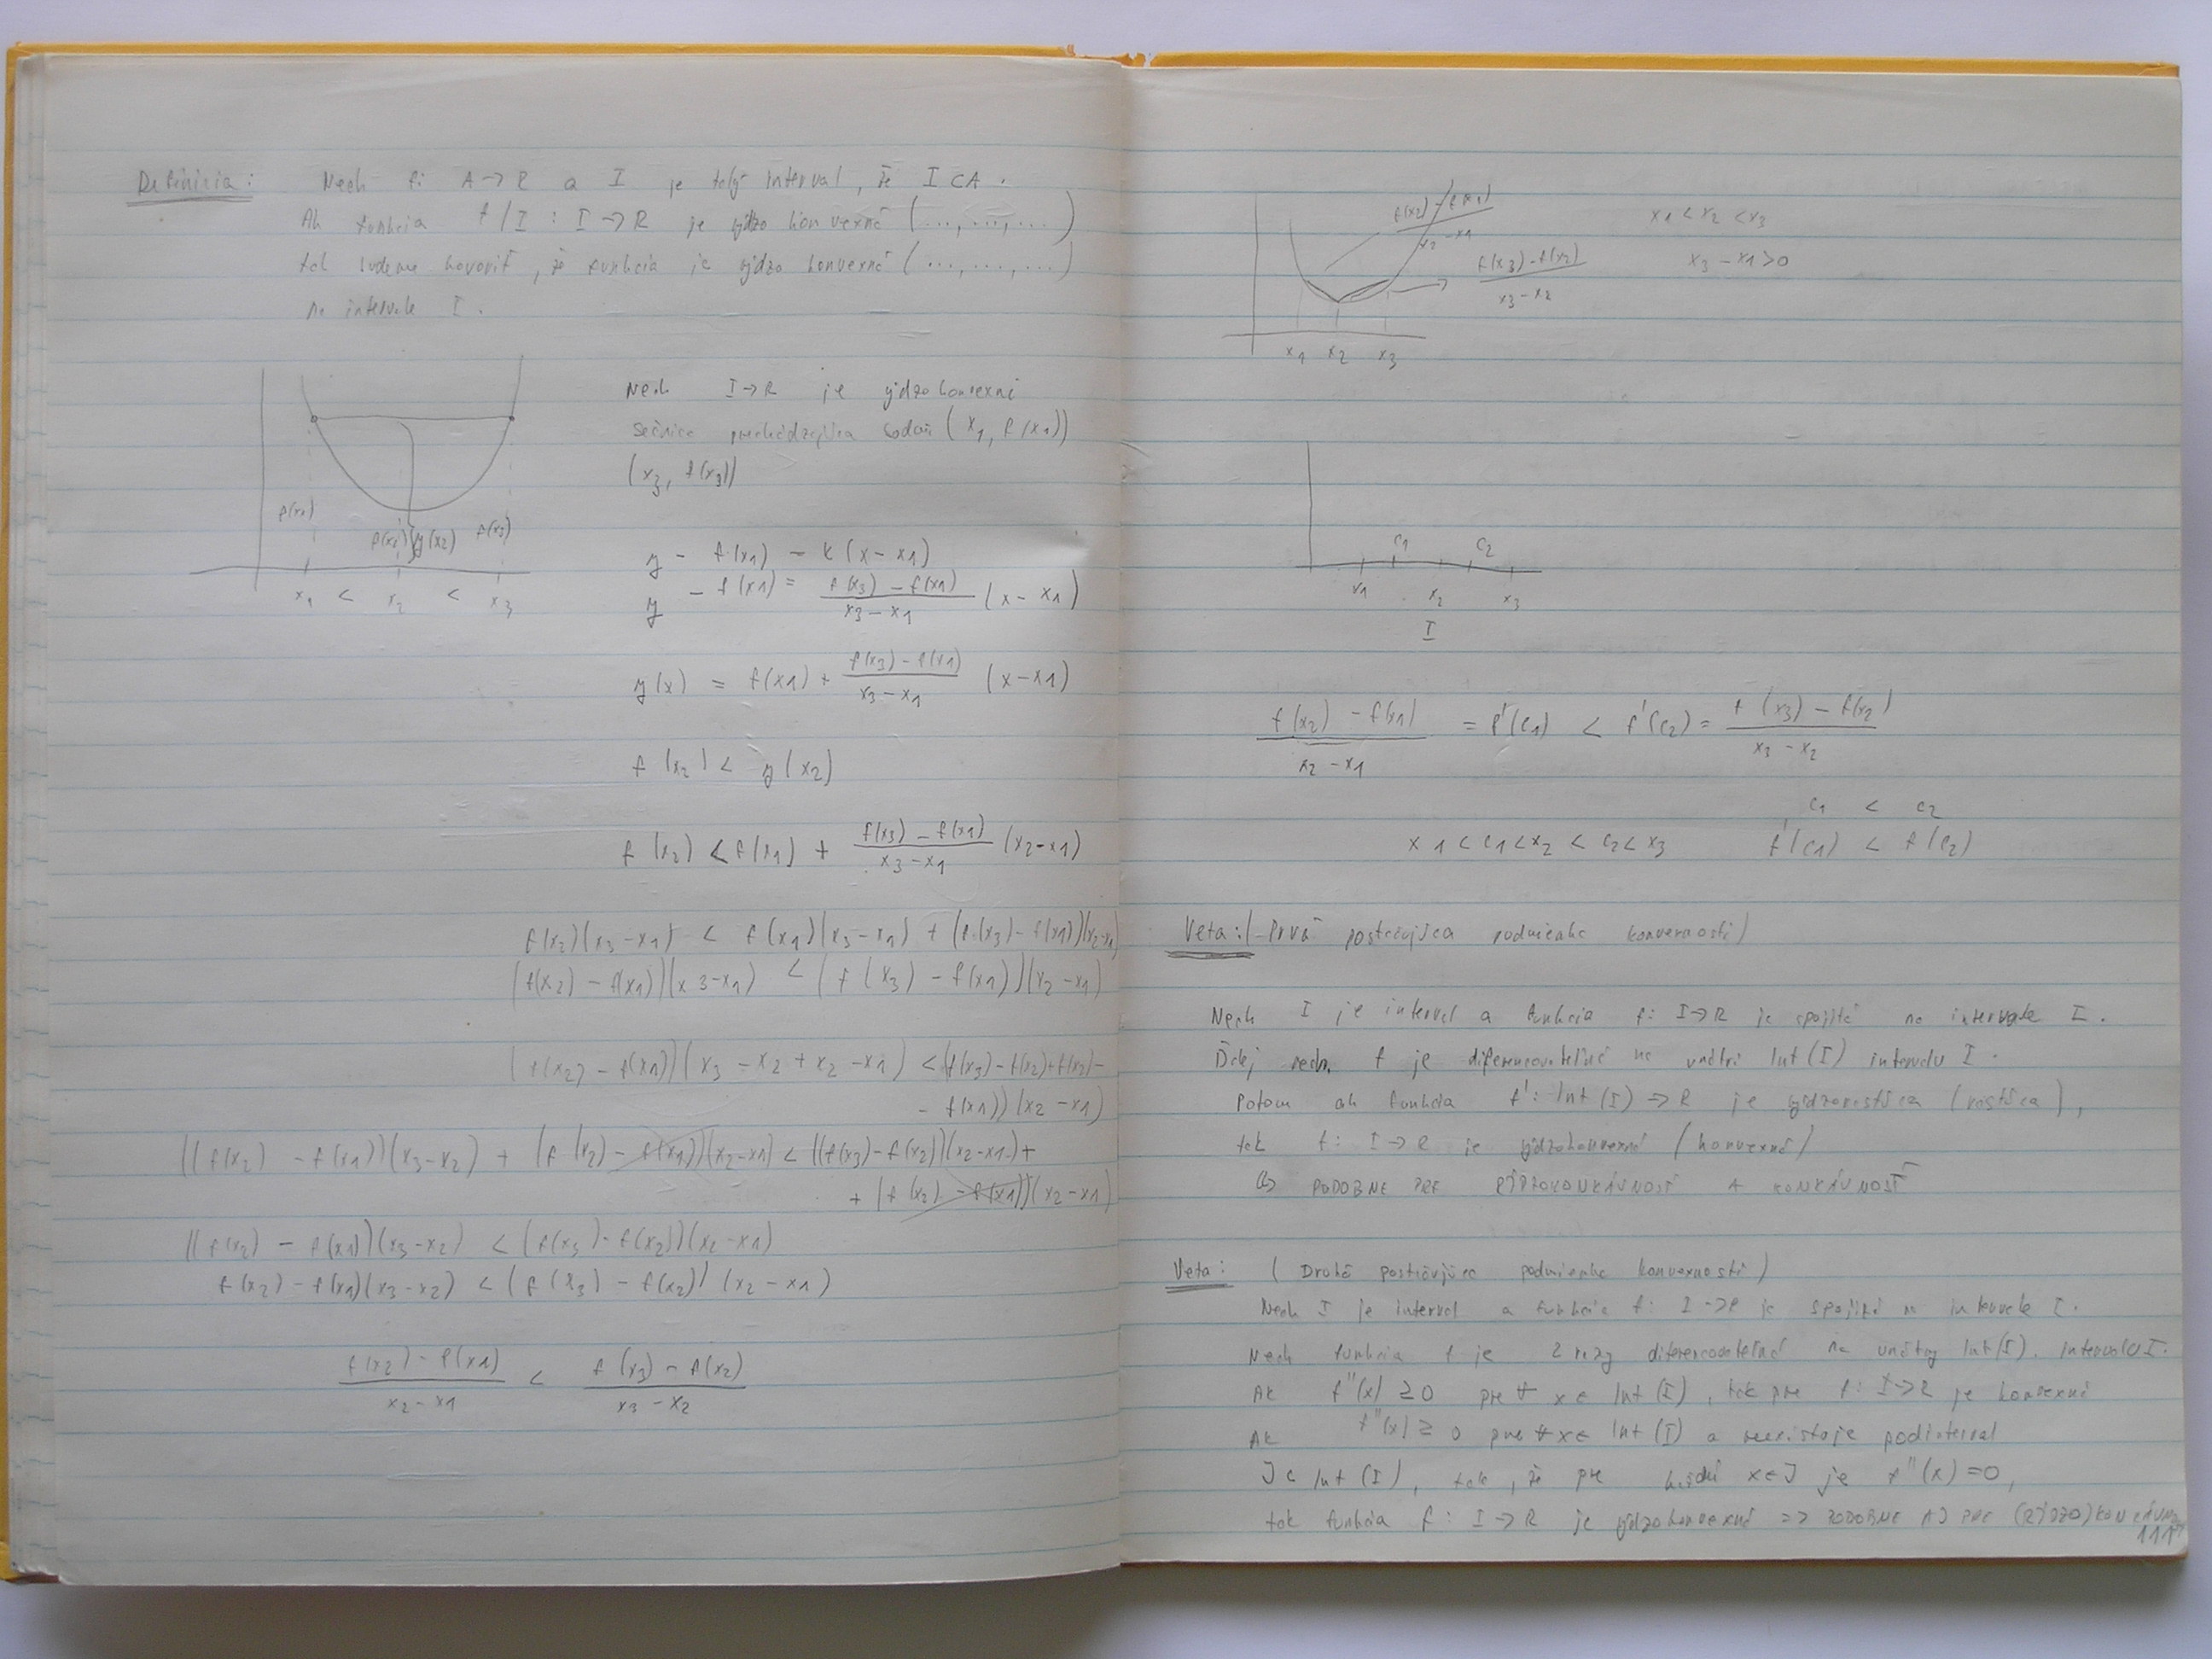 Definícia: Nech f: A → R a I je taký interval, že I ⊂ A.
Ak funkcia f/I : I → R je rýdzo konvexná (..., ..., ...)
tak budeme hovoriť, že funkcia je rýdzo konvexná (..., ..., ...)
na intervale I.
f(x1)
f(x2) y(x2) f(x3)
x1 < x2 < x3
Nech I → R je rýdzo konvexná
sečnica prechádzajúca bodmi (x1, f(x1))
(x3, f(x3))
y - f(x1) = k(x - x1)
y - f(x1) = \frac{f(x3) - f(x1)}{x3 - x1} (x - x1)
y(x) = f(x1) + \frac{f(x3) - f(x1)}{x3 - x1} (x - x1)
f(x2) < y(x2)
f(x2) < f(x1) + \frac{f(x3) - f(x1)}{x3 - x1} (x2 - x1)
f(x2)(x3 - x1) < f(x1)(x3 - x1) + (f(x3) - f(x1))(x2 - x1)
(f(x2) - f(x1))(x3 - x1) < (f(x3) - f(x1))(x2 - x1)
(f(x2) - f(x1))(x3 - x2 + x2 - x1) < (f(x3) - f(x2) + f(x2) -
- f(x1))(x2 - x1)
((f(x2) - f(x1))(x3 - x2) + (f(x2) - f(x1))(x2 - x1) < ((f(x3) - f(x2))(x2 - x1) +
+ (f(x2) - f(x1))(x2 - x1)
((f(x2) - f(x1))(x3 - x2) < (f(x3) - f(x2))(x2 - x1)
f(x2) - f(x1)(x3 - x2) < (f(x3) - f(x2)) (x2 - x1)
\frac{f(x2) - f(x1)}{x2 - x1} < \frac{f(x3) - f(x2)}{x3 - x2}
\frac{f(x2) - f(x1)}{x2 - x1} x1 < x2 < x3
\frac{f(x3) - f(x2)}{x3 - x2} x3 - x1 > 0
x1 x2 x3
c1 c2
x1 x2 x3
I
\frac{f(x2) - f(x1)}{x2 - x1} = f'(c1) < f'(c2) = \frac{f(x3) - f(x2)}{x3 - x2}
c1 < c2
x1 < c1 < x2 < c2 < x3 f'(c1) < f(c2)
Veta: (Prvá postačujúca podmienka konvexnosti)
Nech I je interval a funkcia f: I → R je spojitá na intervale I.
Ďalej nech f je diferencovateľná na vnútri Int(I) intervalu I.
Potom ak funkcia f': Int(I) → R je rýdzorastúca (rastúca),
tak f: I → R je rýdzokonvexná (konvexná)
↳ PODOBNE PRE RÝDZOKONKÁVNOSŤ A KONKÁVNOSŤ
Veta: (Druhá postačujúca podmienka konvexnosti)
Nech I je interval a funkcia f: I → R je spojitá na intervale I.
Nech funkcia f je 2 razy diferencovateľná na vnútraj Int(I). Intervalu I.
Ak f''(x) ≥ 0 pre ∀ x ∈ Int(I), tak pre f: I → R je konvexná
Ak f''(x) ≥ 0 pre ∀ x ∈ Int(I) a neexistuje podinterval
J ⊂ Int(I), tak, že pre každé x ∈ J je f''(x) = 0,
tak funkcia f: I → R je rýdzokonvexná => PODOBNE AJ PRE (RÝDZO)KONKÁVN